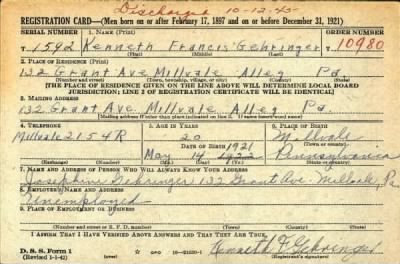 Discharged 10-12-45
REGISTRATION CARD—(Men born on or after February 17, 1897 and on or before December 31, 1921)
SERIAL NUMBER 1. NAME (Print) ORDER NUMBER
T 1542 Kenneth Francis Gehringer 10980
(First) (Middle) (Last)
2. PLACE OF RESIDENCE (Print)
132 Grant Ave Millvale Alleg Pa.
(Number and street) (Town, township, village, or city) (County) (State)
[THE PLACE OF RESIDENCE GIVEN ON THE LINE ABOVE WILL DETERMINE LOCAL BOARD
JURISDICTION; LINE 2 OF REGISTRATION CERTIFICATE WILL BE IDENTICAL]
3. MAILING ADDRESS
132 Grant Ave. Millvale Alleg Pa.
[Mailing address if other than place indicated on line 2. If same insert word same]
4. TELEPHONE 5. AGE IN YEARS 6. PLACE OF BIRTH
20 Millvale
Millvale 2154R DATE OF BIRTH 1921 (Town or county)
May 14 Pennsylvania
(Exchange) (Number) (Mo.) (Day) (Yr.) (State or country)
7. NAME AND ADDRESS OF PERSON WHO WILL ALWAYS KNOW YOUR ADDRESS
Josephine Gehringer 132 Grant Ave. Millvale, Pa
8. EMPLOYER'S NAME AND ADDRESS
Unemployed
9. PLACE OF EMPLOYMENT OR BUSINESS
(Number and street or R. F. D. number) (Town) (County) (State)
I AFFIRM THAT I HAVE VERIFIED ABOVE ANSWERS AND THAT THEY ARE TRUE.
D. S. S. Form 1 Kenneth F. Gehringer
(Revised 1-1-42) (over) 16-21630-1 (Registrant's signature)